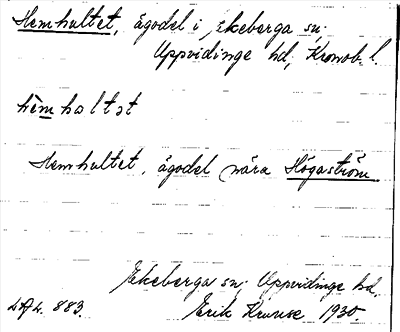 Hemhultet, ägodel i Ekeberga sn;
Uppvidinge hd, Kronob. l.
hèmholtət
Hemhultet, ägodel nära Högaström
Ekeberga sn; Uppvidinge hd.
LAL. 883. Erik Krause 1930.